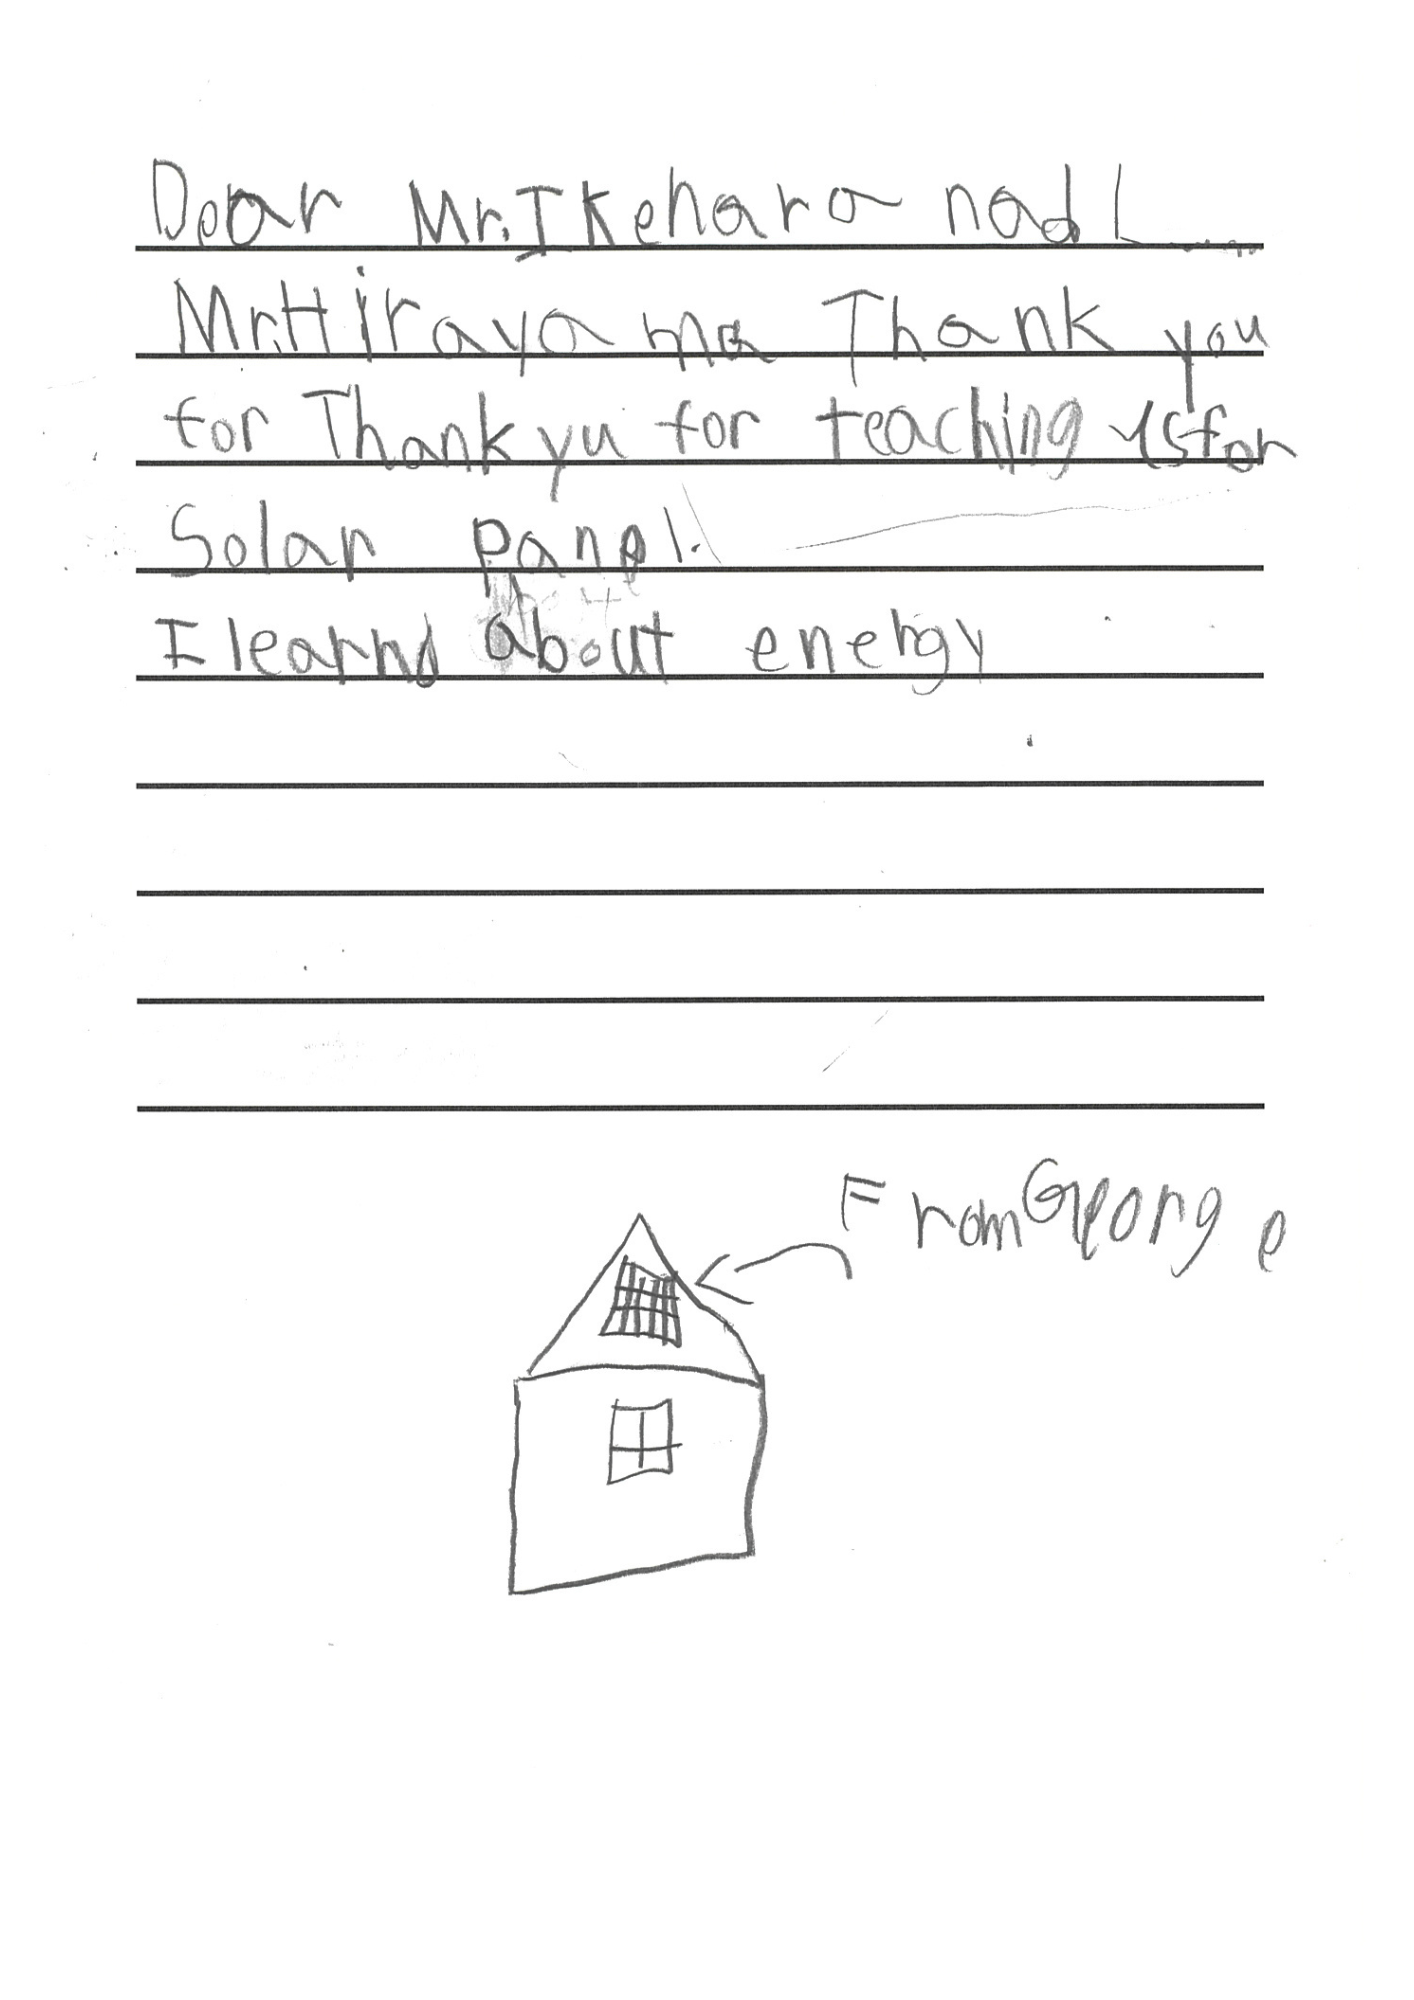 Dear Mr. Ikehara nad
Mr. Hirayama Thank you
for Thank yu for teaching us for
Solar panel.
I learnd about energy
From George